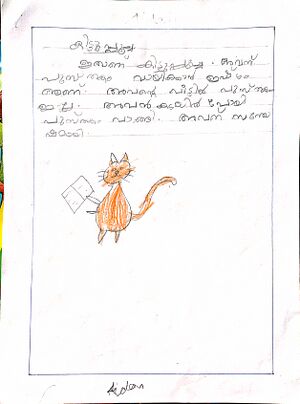 കിട്ടുപൂച്ച
ഇതാണ് കിട്ടുപൂച്ച. അവന്
പുസ്തകം വായിക്കാൻ ഇഷ്ടം
ആണ്. അവന്റെ വീട്ടിൽ പുസ്തകം
ഇല്ല. അവൻ കടയിൽ പോയി
പുസ്തകം വാങ്ങി. അവന് സന്തോ
ഷമായി.